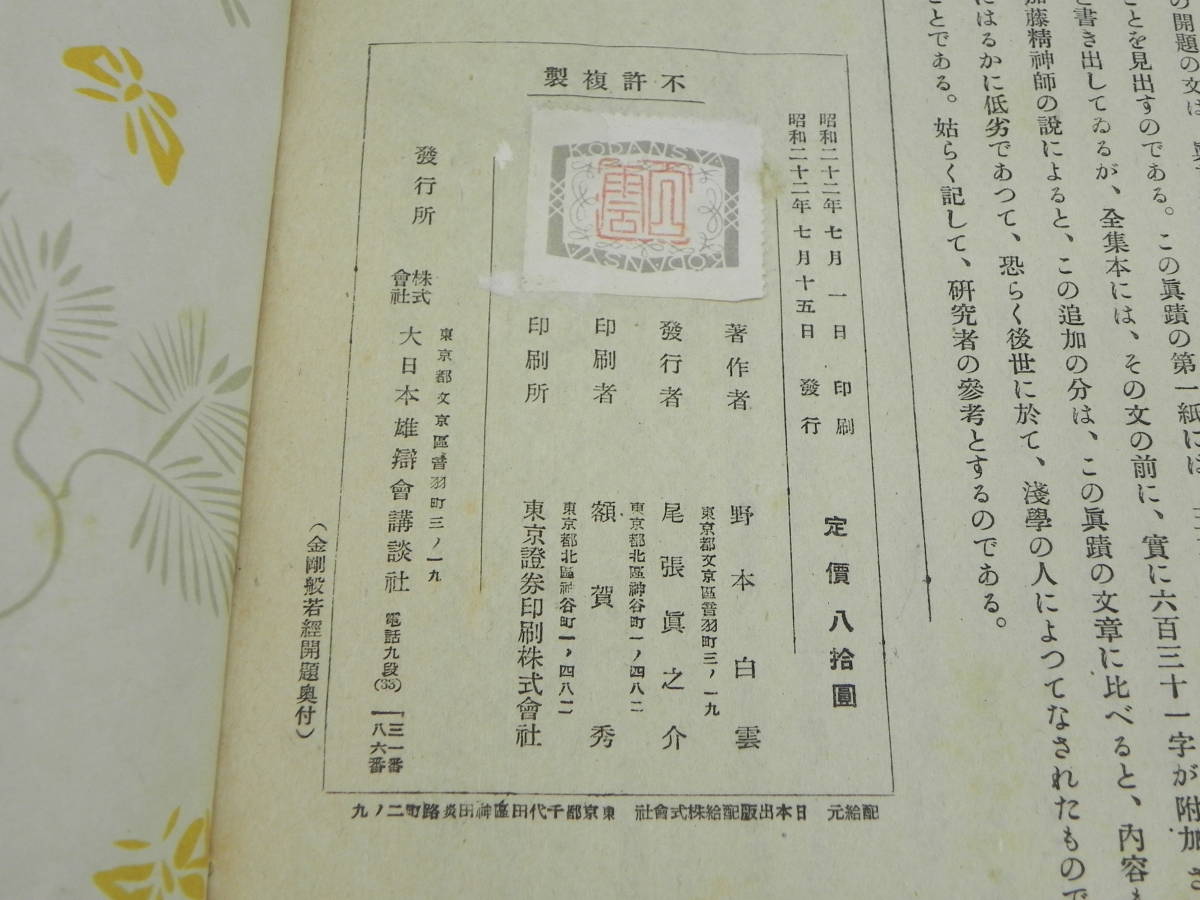 の開題の文は
ことを見出すのである。この眞蹟の第一紙には
と書き出してゐるが、全集本には、その文の前に、實に六百三十一字が附加さ
加藤精神師の說によると、この追加の分は、この眞蹟の文章に比べると、內容も
にはるかに低劣であつて、恐らく後世に於て、淺學の人によつてなされたもので
ことである。姑らく記して、硏究者の參考とするのである。
不許複製
KODANSYA
KODANSYA
昭和二十二年七月一日 印刷
昭和二十二年七月十五日 發行
定價八拾圓
著作者 野本白雲
東京都文京區音羽町三ノ一九
發行者 尾張眞之介
東京都北區神谷町一ノ四八二
印刷者 額賀秀
東京都北區神谷町一ノ四八二
印刷所 東京證券印刷株式會社
東京都文京區音羽町三ノ一九
發行所 株式會社 大日本雄辯會講談社 電話九段(33)
一三一番
一八六番
(金剛般若經開題奧付)
配給元 日本出版配給株式會社 東京都千代田區神田淡路町二ノ九